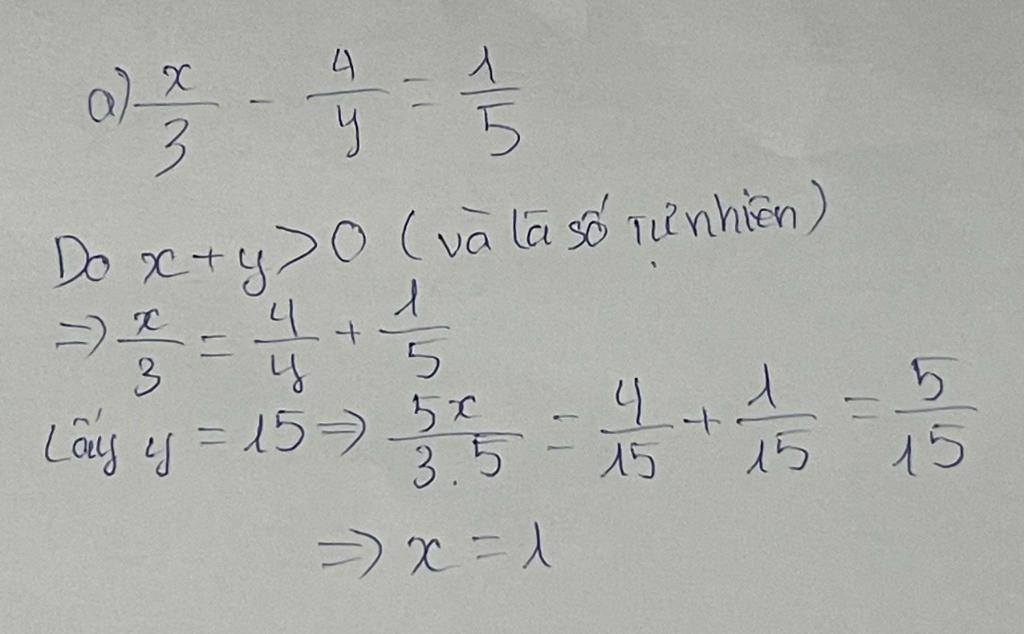 a) x/3 - 4/y = 1/5
Do x + y > 0 (và là số tự nhiên)
=> x/3 = 4/y + 1/5
Lấy y = 15 => 5x/3.5 = 4/15 + 1/15 = 5/15
=> x = 1